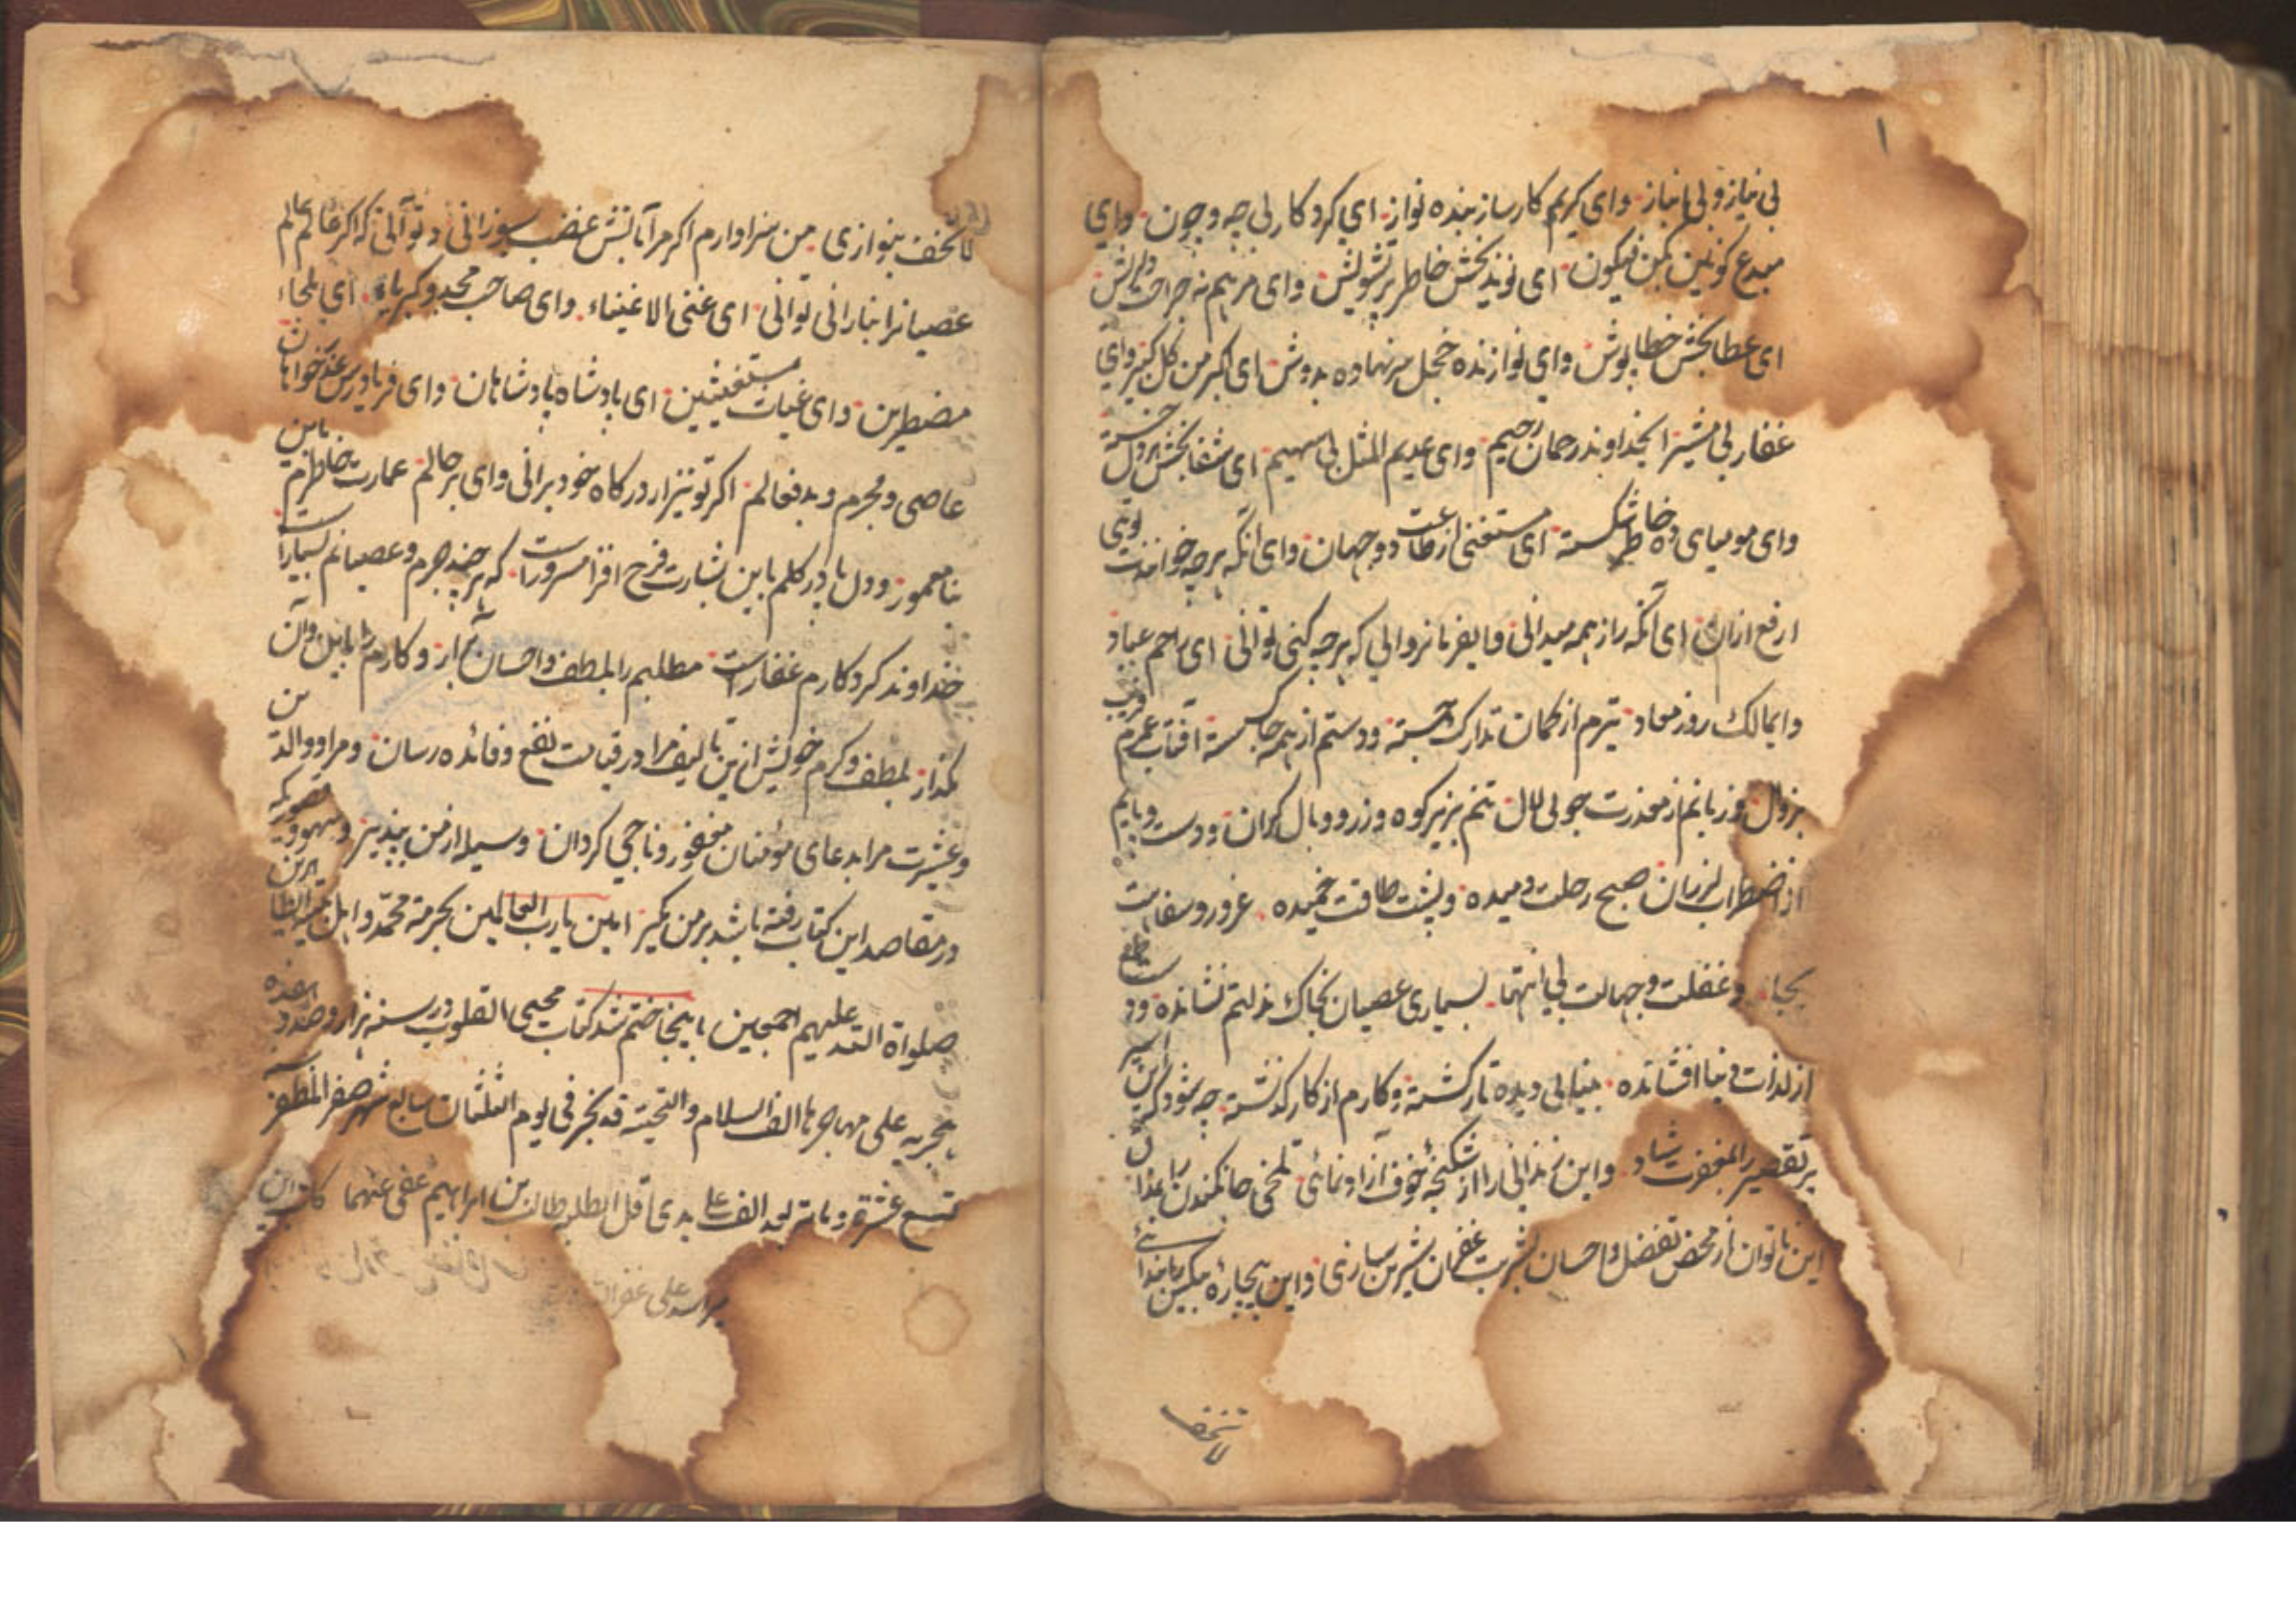 بی نیاز و لی با نیاز وای کریم کارساز بنده نواز ای کردکار بی چه و چون وای
مبدع کونین بکن فیکون ای نوید بخش خاطر پر تشویش وای مرهم نه جراحت دلریش
ای عطا بخش خطا پوش وای نوازنده خجل سر نهاده بدوش ای اکبر من کل کبیر وای
غفار بی مشیر ای خداوند رحمان رحیم وای عدیم المثل بی سهیم ای شفا بخش هر دل خسته
وای مومیای خاطر شکسته ای مستغنی از طاعت دو جهان وای آنکه هر چه خوانندت توئی
ارفع از ان ای آنکه راز همه میدانی فرمانروائی که هر چه کنی توانی ای راحم عباد
وایمالک روز معاد تیرم از کمان تدارک جسته و دستم از همه جا کسسته افتاب عمرم قریب
بزوال و زبانم از معذرت جوئی لال تنم بزیر کوه وزر و وبال کران و دست و پایم
از اضطراب لرزان صبح رحلت دمیده و پشت طاقت خمیده غرور و سفاهت
بجا و غفلت و جهالت بی انتها بسیاری عصیان بخاک مذلتم نشانده و دست طمع
از لذات دنیا افشانده بینائی دیده تار کشته و کارم از کار کذشته چه شود کر این پیر
پر تقصیر را بمغفرت شاد و این زندانی را از شکنجه خوف آزاد نمائی تلخی جان کندن را بمذاق
این ناتوان از محض تفضل و احسان بشربت غفران شیرین سازی و این بیچاره مسکین را بندای
لا تخف
لا تخف بنوازی من سزاوارم اکر مرا بآتش غضب بسوزانی و تو آنی که اکر عالم عالم
عصیانرا نیارانی توانی ای غنی الاغنیاء وای صاحب مجد و کبریاء ای ملجاء
مضطرین وای غیاث مستغیثین ای پادشاه پادشاهان وای فریادرس عذرخواهان
عاصی و مجرم و بدفعالم اکر تو نیز از درکاه خود برانی وای بر حالم عمارت خاطرم باین
بنا معمور و دل پا در کلم باین بشارت فرح افزا مسرور است که هر چند جرم و عصیانم بسیار است
خداوند کردکارم غفار است مطالبم را بلطف و احسان برآر و کارم را باین و آن
مکذار بلطف و کرم خویش ازین تالیف مرا در قیامت نفع و فائده رسان و مرا و والدین
و عشیرت مرا بدعای مؤمنان مغفور و ناجی کردان وسیله از من بپذیر و سهو و قصوریکه
در مقاصد این کتاب رفته باشد بر من مکیر امین یا رب العالمین بحرمة محمد و اهل بیته الطاهرین
صلواة الله علیهم اجمعین باینجا ختم شد کتاب محیی القلوب در سنه هزار و صد و هفده
هجریه علی مهاجرها الف السلام و التحیة قد نجز فی یوم الثلثان سابع شهر صفر المظفر
تسع عشرة و مائة بعد الف علی یدی اقل الطلبه طالب بن ابراهیم عفی عنهما کاتب این
میر اسد علی غفر